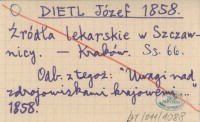 DIETL Józef 1858.
Źródła lekarskie w Szczaw-
nicy. — Kraków. Ss. 66.
Odb. z tegoż: "Uwagi nad
zdrojowiskami krajowemi..."
1858.